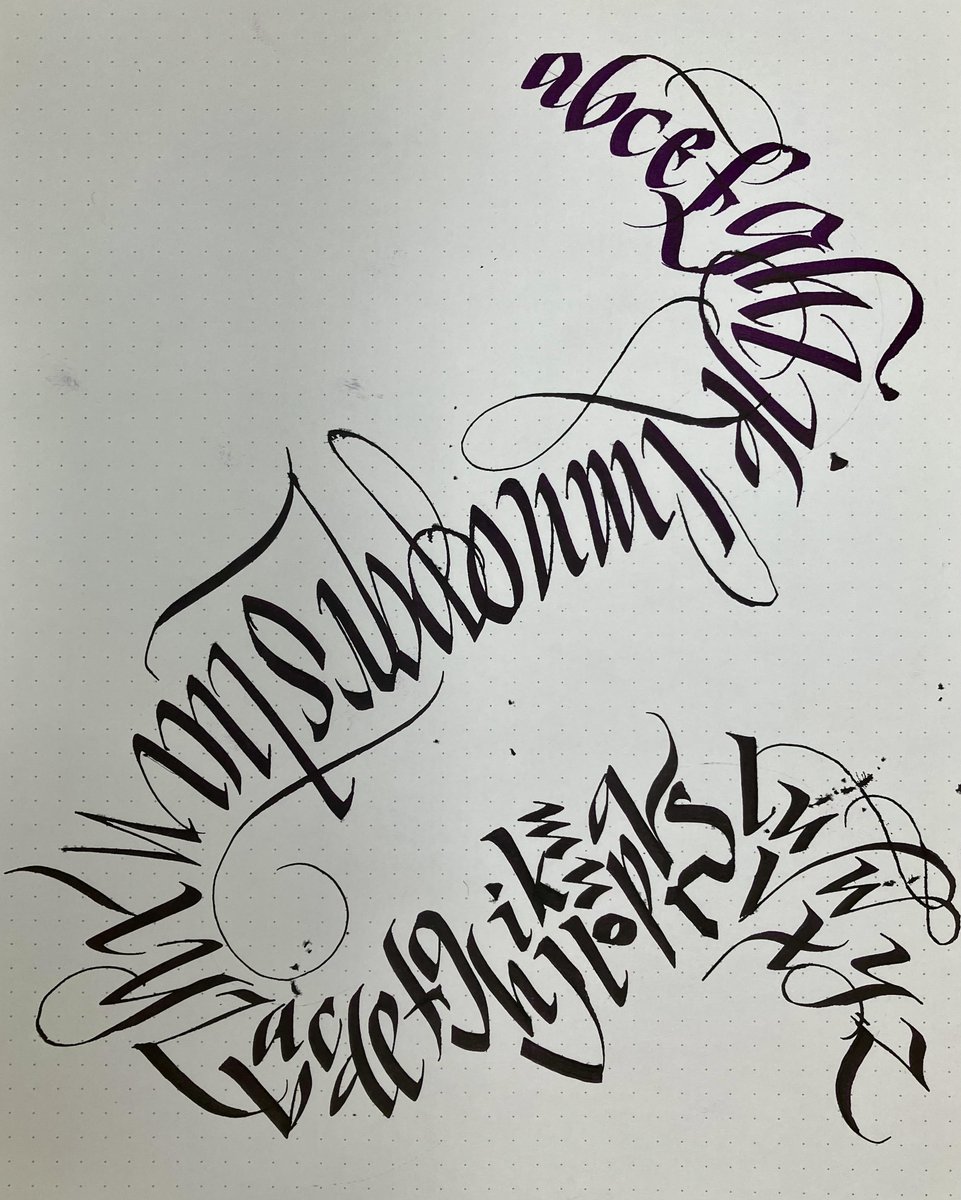 abcefghijklmnopqrstuvwxyz
abcdefghijklmnopqrstuvwxyz